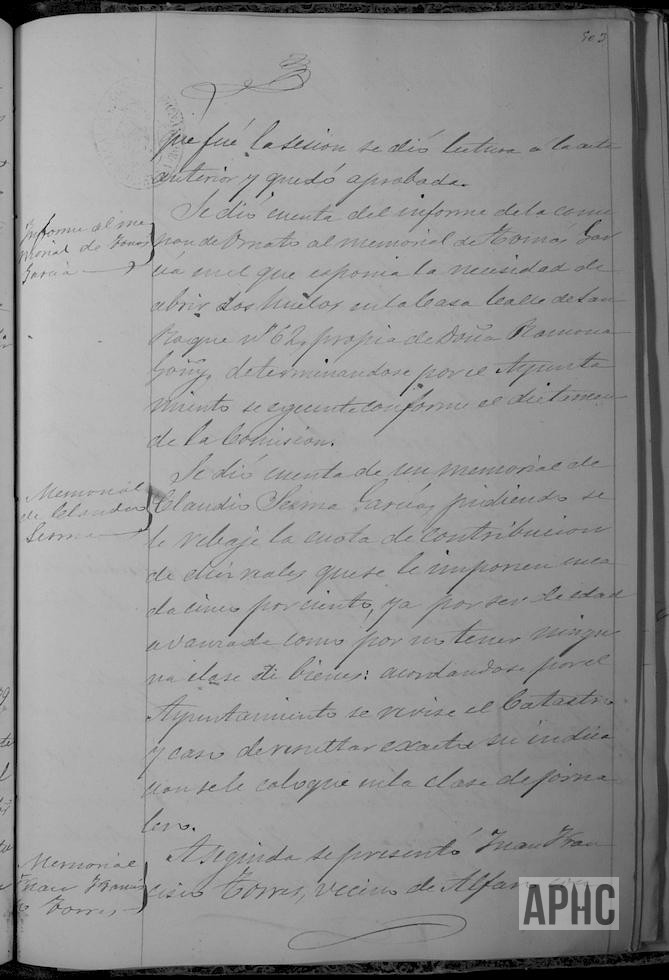 503
que fué la sesion se dió lectura á la acta
anterior y quedó aprobada.
Informe al me
morial de Tomas
Garcia
Se dió cuenta del informe de la comi
sion de Ornato al memorial de Tomás Gar
cia en el que esponia la necesidad de
abrir dos huecos en la Casa Calle de San
Roque nº 62, propia de Doña Ramona
Goñy, determinandose por el Ayunta
miento se egecute conforme el dictamen
de la Comision.
Memorial
de Claudio
Sesma
Se dió cuenta de un memorial de
Claudio Sesma Garcia, pidiendo se
le rebaje la cuota de contribucion
de diez reales que se le imponen en ca
da cinco por ciento, ya por ser de edad
avanzada como por no tener ningu
na clase de bienes: acordandose por el
Ayuntamiento se revise el Catastro
y caso de resultar exacta su indica
cion se le coloque en la clase de jorna
lero.
Memorial
Juan Francis
co Torres
A seguida se presentó Juan Fran
cisco Torres, vecino de Alfaro
APHC